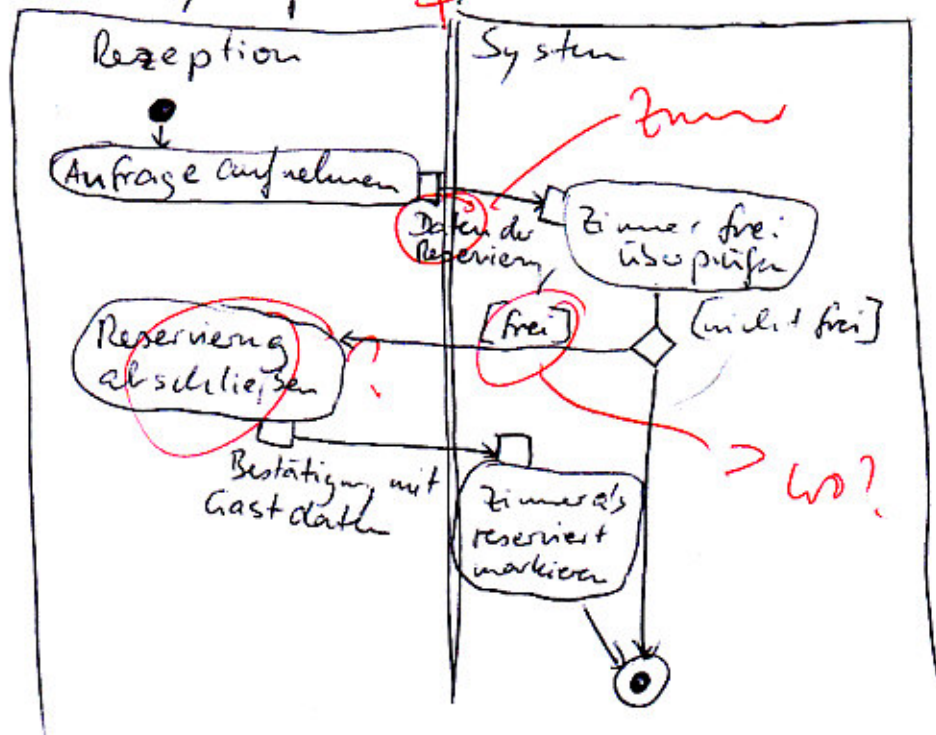 Rezeption
System
Anfrage aufnehmen
Daten der
Zimmer frei
überprüfen
[frei]
[nicht frei]
Reservierung
abschließen
?
Bestätigung mit
Gastdaten
Zimmer als
reserviert
markieren
wo?